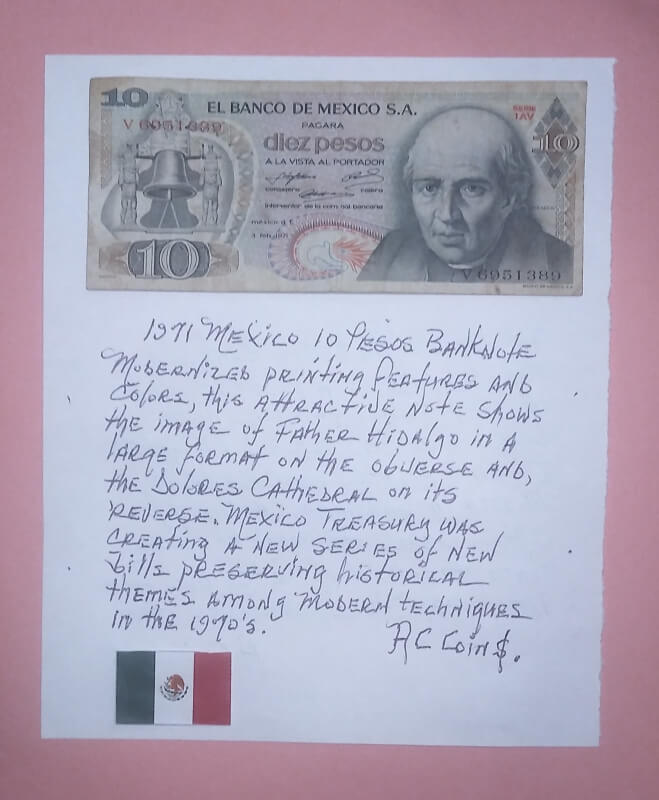 10
EL BANCO DE MEXICO S.A.
SERIE
1AV
V 6951389
PAGARA
10
diez pesos
A LA VISTA AL PORTADOR
consejero
cajero
interventor de la com. nal. bancaria
mexico d. f.
3 feb. 1971
10
V 6951389
1971 MEXICO 10 PESOS BANKNOTE
MODERNIZED PRINTING FEATURES AND
COLORS, this ATTRACTIVE NOTE SHOWS
the IMAGE of FATHER HIDALGO IN A
LARGE FORMAT ON the OBVERSE AND,
the DOLORES CATHEDRAL ON ITS
REVERSE. MEXICO TREASURY WAS
CREATING A NEW SERIES of NEW
bills PRESERVING HISTORICAL
themes AMONG MODERN techniques
in the 1970's.
AC COIN$.